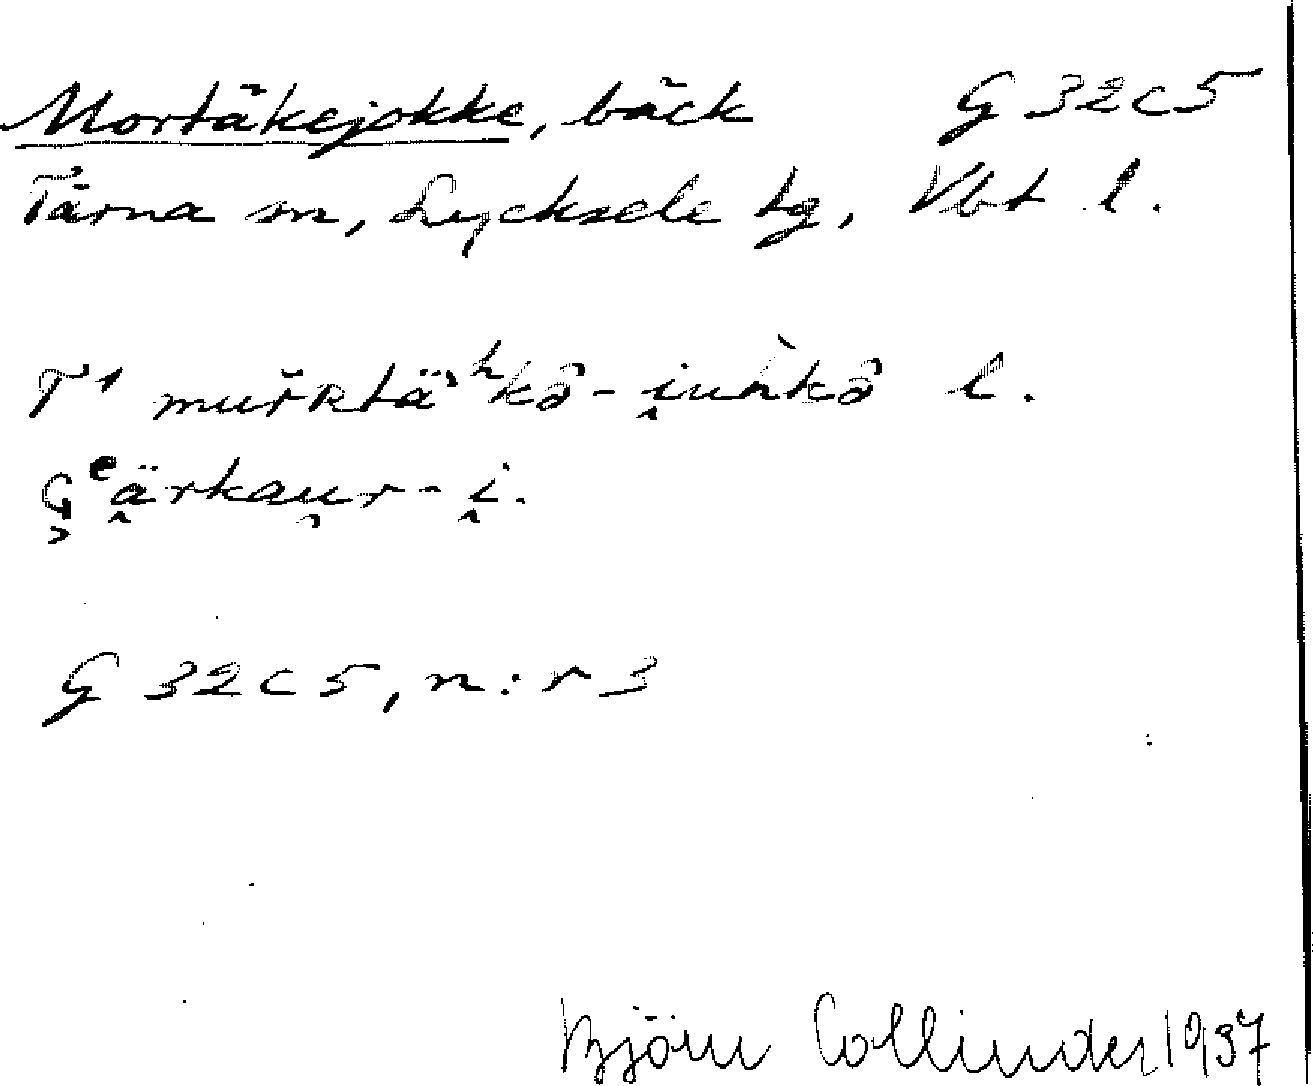 Mortäkejokke, bäck G 32c5
Tärna sn, Lycksele tg, Vbt l.
T1 muřʀtä`ʰkô-i̭uh̀kô l.
G̭ᵉä̭rkau̯r-i̭.
G 32c5, n:r 3
Björn Collinder 1937